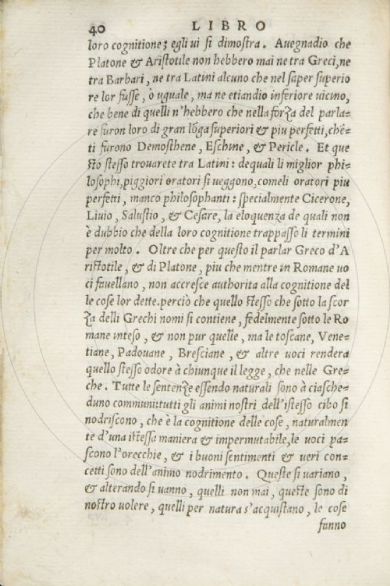 40 LIBRO
loro cognitione; egli ui si dimostra. Auegnadio che
Platone & Aristotile non hebbero mai ne tra Greci, ne
tra Barbari, ne tra Latini alcuno che nel saper superio
re lor fusse, ò uguale, ma ne etiandio inferiore uicino,
che bene di quelli n'hebbero che nella forza del parla-
re furon loro di gran lõga superiori & piu perfetti, chẽ-
ti furono Demosthene, Eschine, & Pericle. Et que
sto stesso trouarete tra Latini: dequali li miglior phi-
losophi, piggiori oratori si ueggono, come li oratori piu
perfetti, manco philosophanti: spetialmente Cicerone,
Liuio, Salustio, & Cesare, la eloquenza de quali non
è dubbio che della loro cognitione trappasso li termini
per molto. Oltre che per questo il parlar Greco d'A
ristotile, & di Platone, piu che mentre in Romane uo
ci fauellano, non accresce authorita alla cognitione del
le cose lor dette. perciò che quello stesso che sotto la scor
za delli Grechi nomi si contiene, fedelmente sotto le Ro
mane inteso, & non pur quelle, ma le toscane, Vene-
tiane, Padouane, Bresciane, & altre uoci rendera
quello stesso odore à chiunque il legge, che nelle Gre-
che. Tutte le sentenze essendo naturali sono à ciasche-
duno communi: tutti gli animi nostri dell'istesso cibo si
nodriscono, che è la cognitione delle cose, naturalmen
te d'una istessa maniera & impermutabile, le uoci pa-
scono l'orecchie, & i buoni sentimenti & ueri con-
cetti sono dell'animo nodrimento. Queste si uariano,
& alterando si uanno, quelli non mai, queste sono di
nostro uolere, quelli per natura s'acquistano, le cose
funno